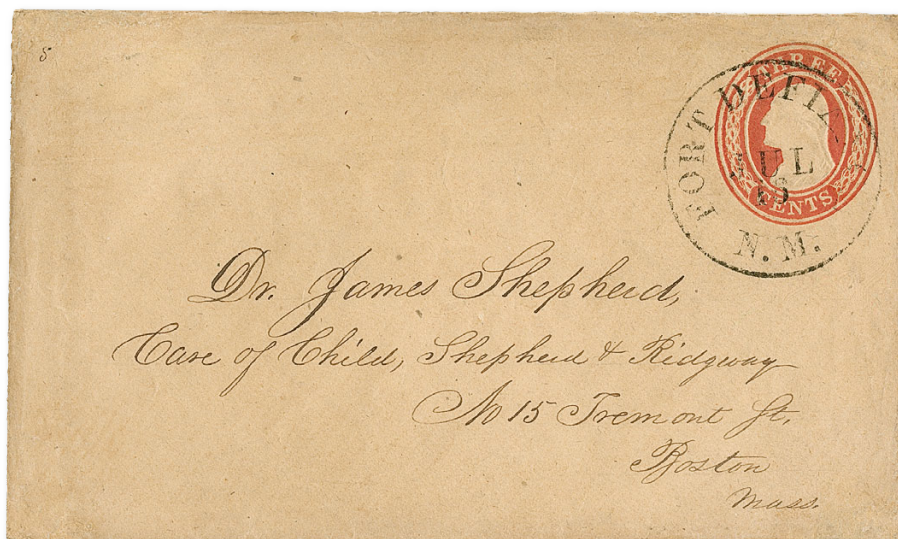 S
THREE
CENTS
FORT DEFIAN
JUL
N. M.
Dr. James Shepherd,
Care of Child, Shepherd & Ridgway
No 15 Tremont St.
Boston
Mass.